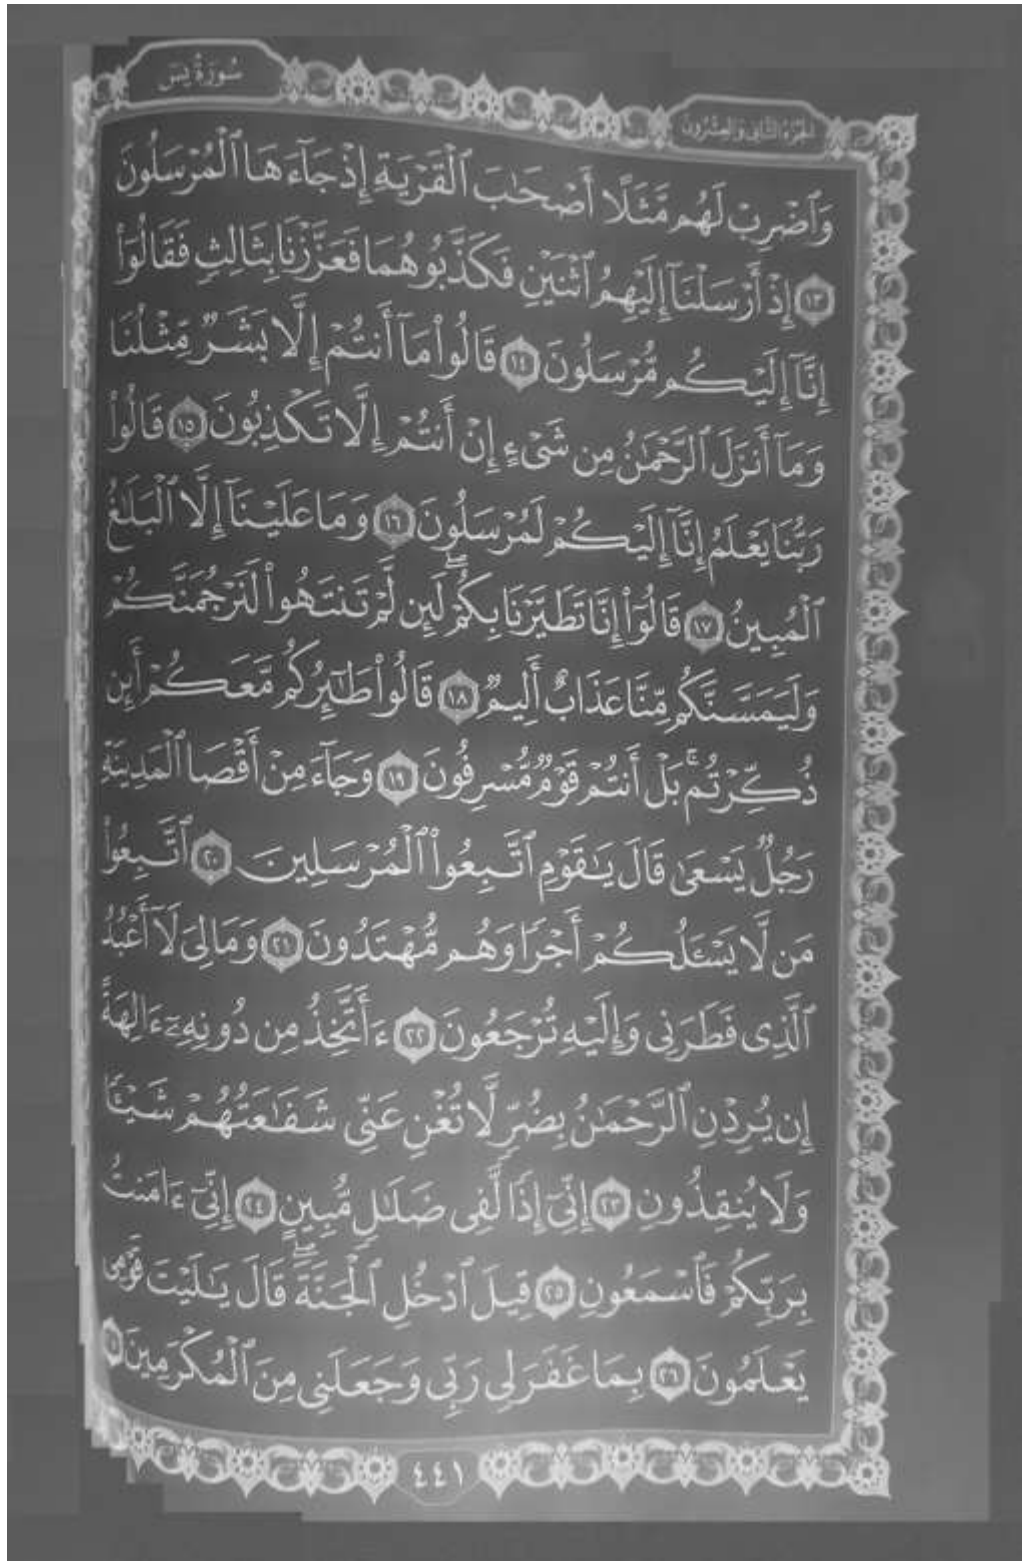 سُورَةُ يسٓ
الجزء الثاني والعشرون
وَٱضۡرِبۡ لَهُم مَّثَلًا أَصۡحَٰبَ ٱلۡقَرۡيَةِ إِذۡ جَآءَهَا ٱلۡمُرۡسَلُونَ
١٣ إِذۡ أَرۡسَلۡنَآ إِلَيۡهِمُ ٱثۡنَيۡنِ فَكَذَّبُوهُمَا فَعَزَّزۡنَا بِثَالِثٖ فَقَالُوٓاْ
إِنَّآ إِلَيۡكُم مُّرۡسَلُونَ ١٤ قَالُواْ مَآ أَنتُمۡ إِلَّا بَشَرٞ مِّثۡلُنَا
وَمَآ أَنزَلَ ٱلرَّحۡمَٰنُ مِن شَيۡءٍ إِنۡ أَنتُمۡ إِلَّا تَكۡذِبُونَ ١٥ قَالُواْ
رَبُّنَا يَعۡلَمُ إِنَّآ إِلَيۡكُمۡ لَمُرۡسَلُونَ ١٦ وَمَا عَلَيۡنَآ إِلَّا ٱلۡبَلَٰغُ
ٱلۡمُبِينُ ١٧ قَالُوٓاْ إِنَّا تَطَيَّرۡنَا بِكُمۡۖ لَئِن لَّمۡ تَنتَهُواْ لَنَرۡجُمَنَّكُمۡ
وَلَيَمَسَّنَّكُم مِّنَّا عَذَابٌ أَلِيمٞ ١٨ قَالُواْ طَٰٓئِرُكُم مَّعَكُمۡ أَئِن
ذُكِّرۡتُمۚ بَلۡ أَنتُمۡ قَوۡمٞ مُّسۡرِفُونَ ١٩ وَجَآءَ مِنۡ أَقۡصَا ٱلۡمَدِينَةِ
رَجُلٞ يَسۡعَىٰ قَالَ يَٰقَوۡمِ ٱتَّبِعُواْ ٱلۡمُرۡسَلِينَ ٢٠ ٱتَّبِعُواْ
مَن لَّا يَسۡـَٔلُكُمۡ أَجۡرٗا وَهُم مُّهۡتَدُونَ ٢١ وَمَالِيَ لَآ أَعۡبُدُ
ٱلَّذِي فَطَرَنِي وَإِلَيۡهِ تُرۡجَعُونَ ٢٢ ءَأَتَّخِذُ مِن دُونِهِۦٓ ءَالِهَةً
إِن يُرِدۡنِ ٱلرَّحۡمَٰنُ بِضُرّٖ لَّا تُغۡنِ عَنِّي شَفَٰعَتُهُمۡ شَيۡـٔٗا
وَلَا يُنقِذُونِ ٢٣ إِنِّيٓ إِذٗا لَّفِي ضَلَٰلٖ مُّبِينٍ ٢٤ إِنِّيٓ ءَامَنتُ
بِرَبِّكُمۡ فَٱسۡمَعُونِ ٢٥ قِيلَ ٱدۡخُلِ ٱلۡجَنَّةَۖ قَالَ يَٰلَيۡتَ قَوۡمِي
يَعۡلَمُونَ ٢٦ بِمَا غَفَرَ لِي رَبِّي وَجَعَلَنِي مِنَ ٱلۡمُكۡرَمِينَ
٤٤١